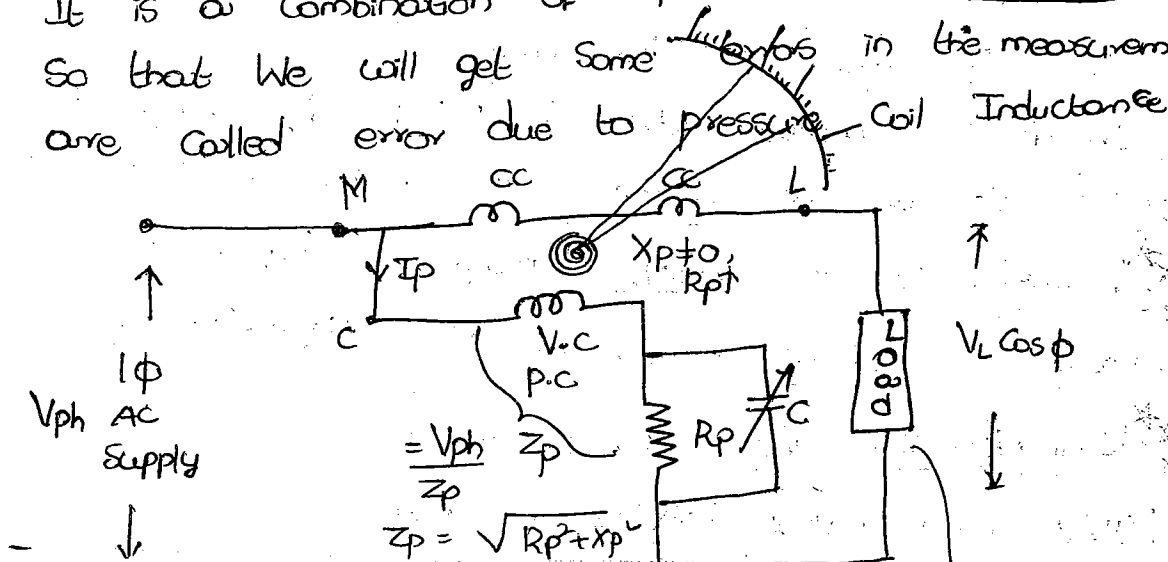 It is a Combination of
So that We will get Some errors in the measurem
are Called error due to pressure Coil Inductance
M CC CC L
Ip Xp≠0,
Rp↑
C V.C
P.C
1ϕ
Vph AC
Supply
= Vph
Zp
Zp
Rp C
Load
VL Cosϕ
Zp = √Rp²+Xp²